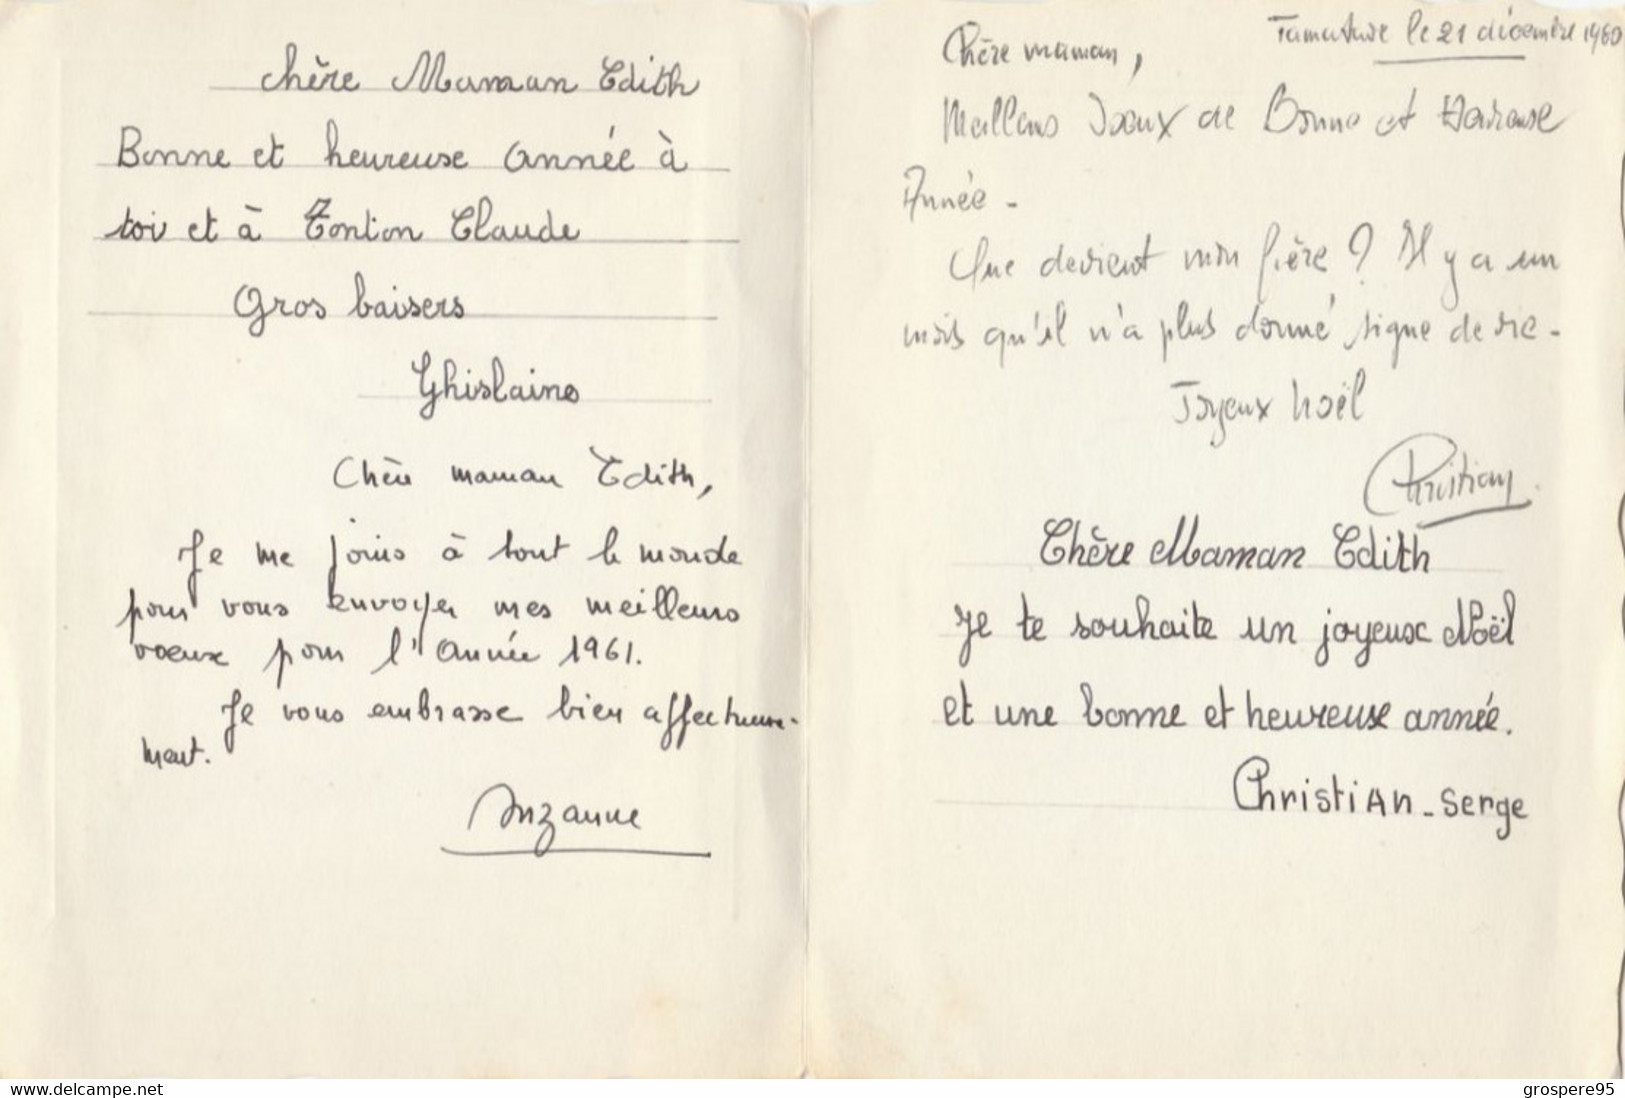 Chère Maman Edith
Bonne et heureuse année à
toi et à Tonton Claude
Gros baisers
Ghislaine
Chère maman Edith,
Je me joins à tout le monde
pour vous envoyer mes meilleurs
voeux pour l'année 1961.
Je vous embrasse bien affectueuse-
ment.
Suzanne
Tamatave le 21 décembre 1960
Chère maman,
Meilleurs Voeux de Bonne et Heureuse
Année -
Que devient mon frère ? Il y a un
mois qu'il n'a plus donné signe de vie -
Joyeux Noël
Christian
Chère Maman Edith
Je te souhaite un joyeux Noël
et une bonne et heureuse année.
Christian - Serge
www.delcampe.net
grospere95